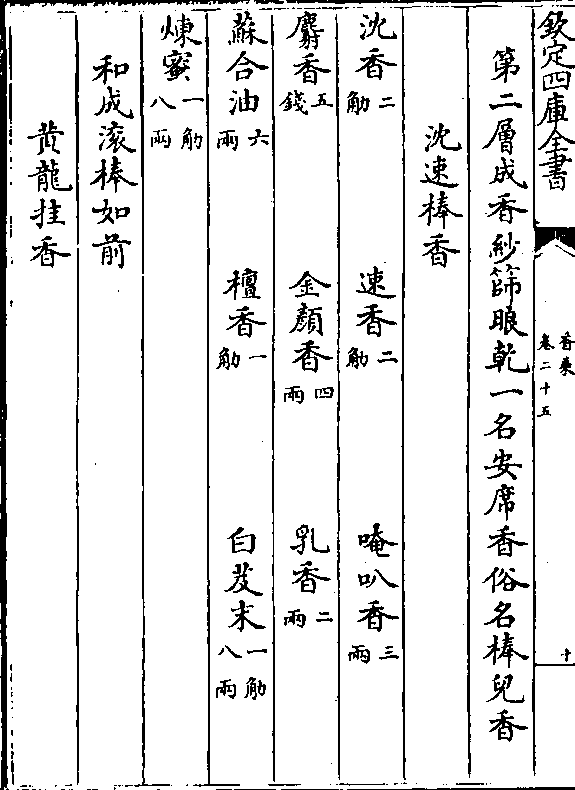 欽定四庫全書
香乘
卷二十五
十
第二層成香紗篩眼乾一名安席香俗名棒兒香
沈速棒香
沈香二觔 速香二觔 唵叭香三兩
麝香五錢 金顏香四兩 乳香二兩
蘇合油六兩 檀香一觔 白芨末一觔八兩
煉蜜一觔八兩
和成滚棒如前
黄龍挂香